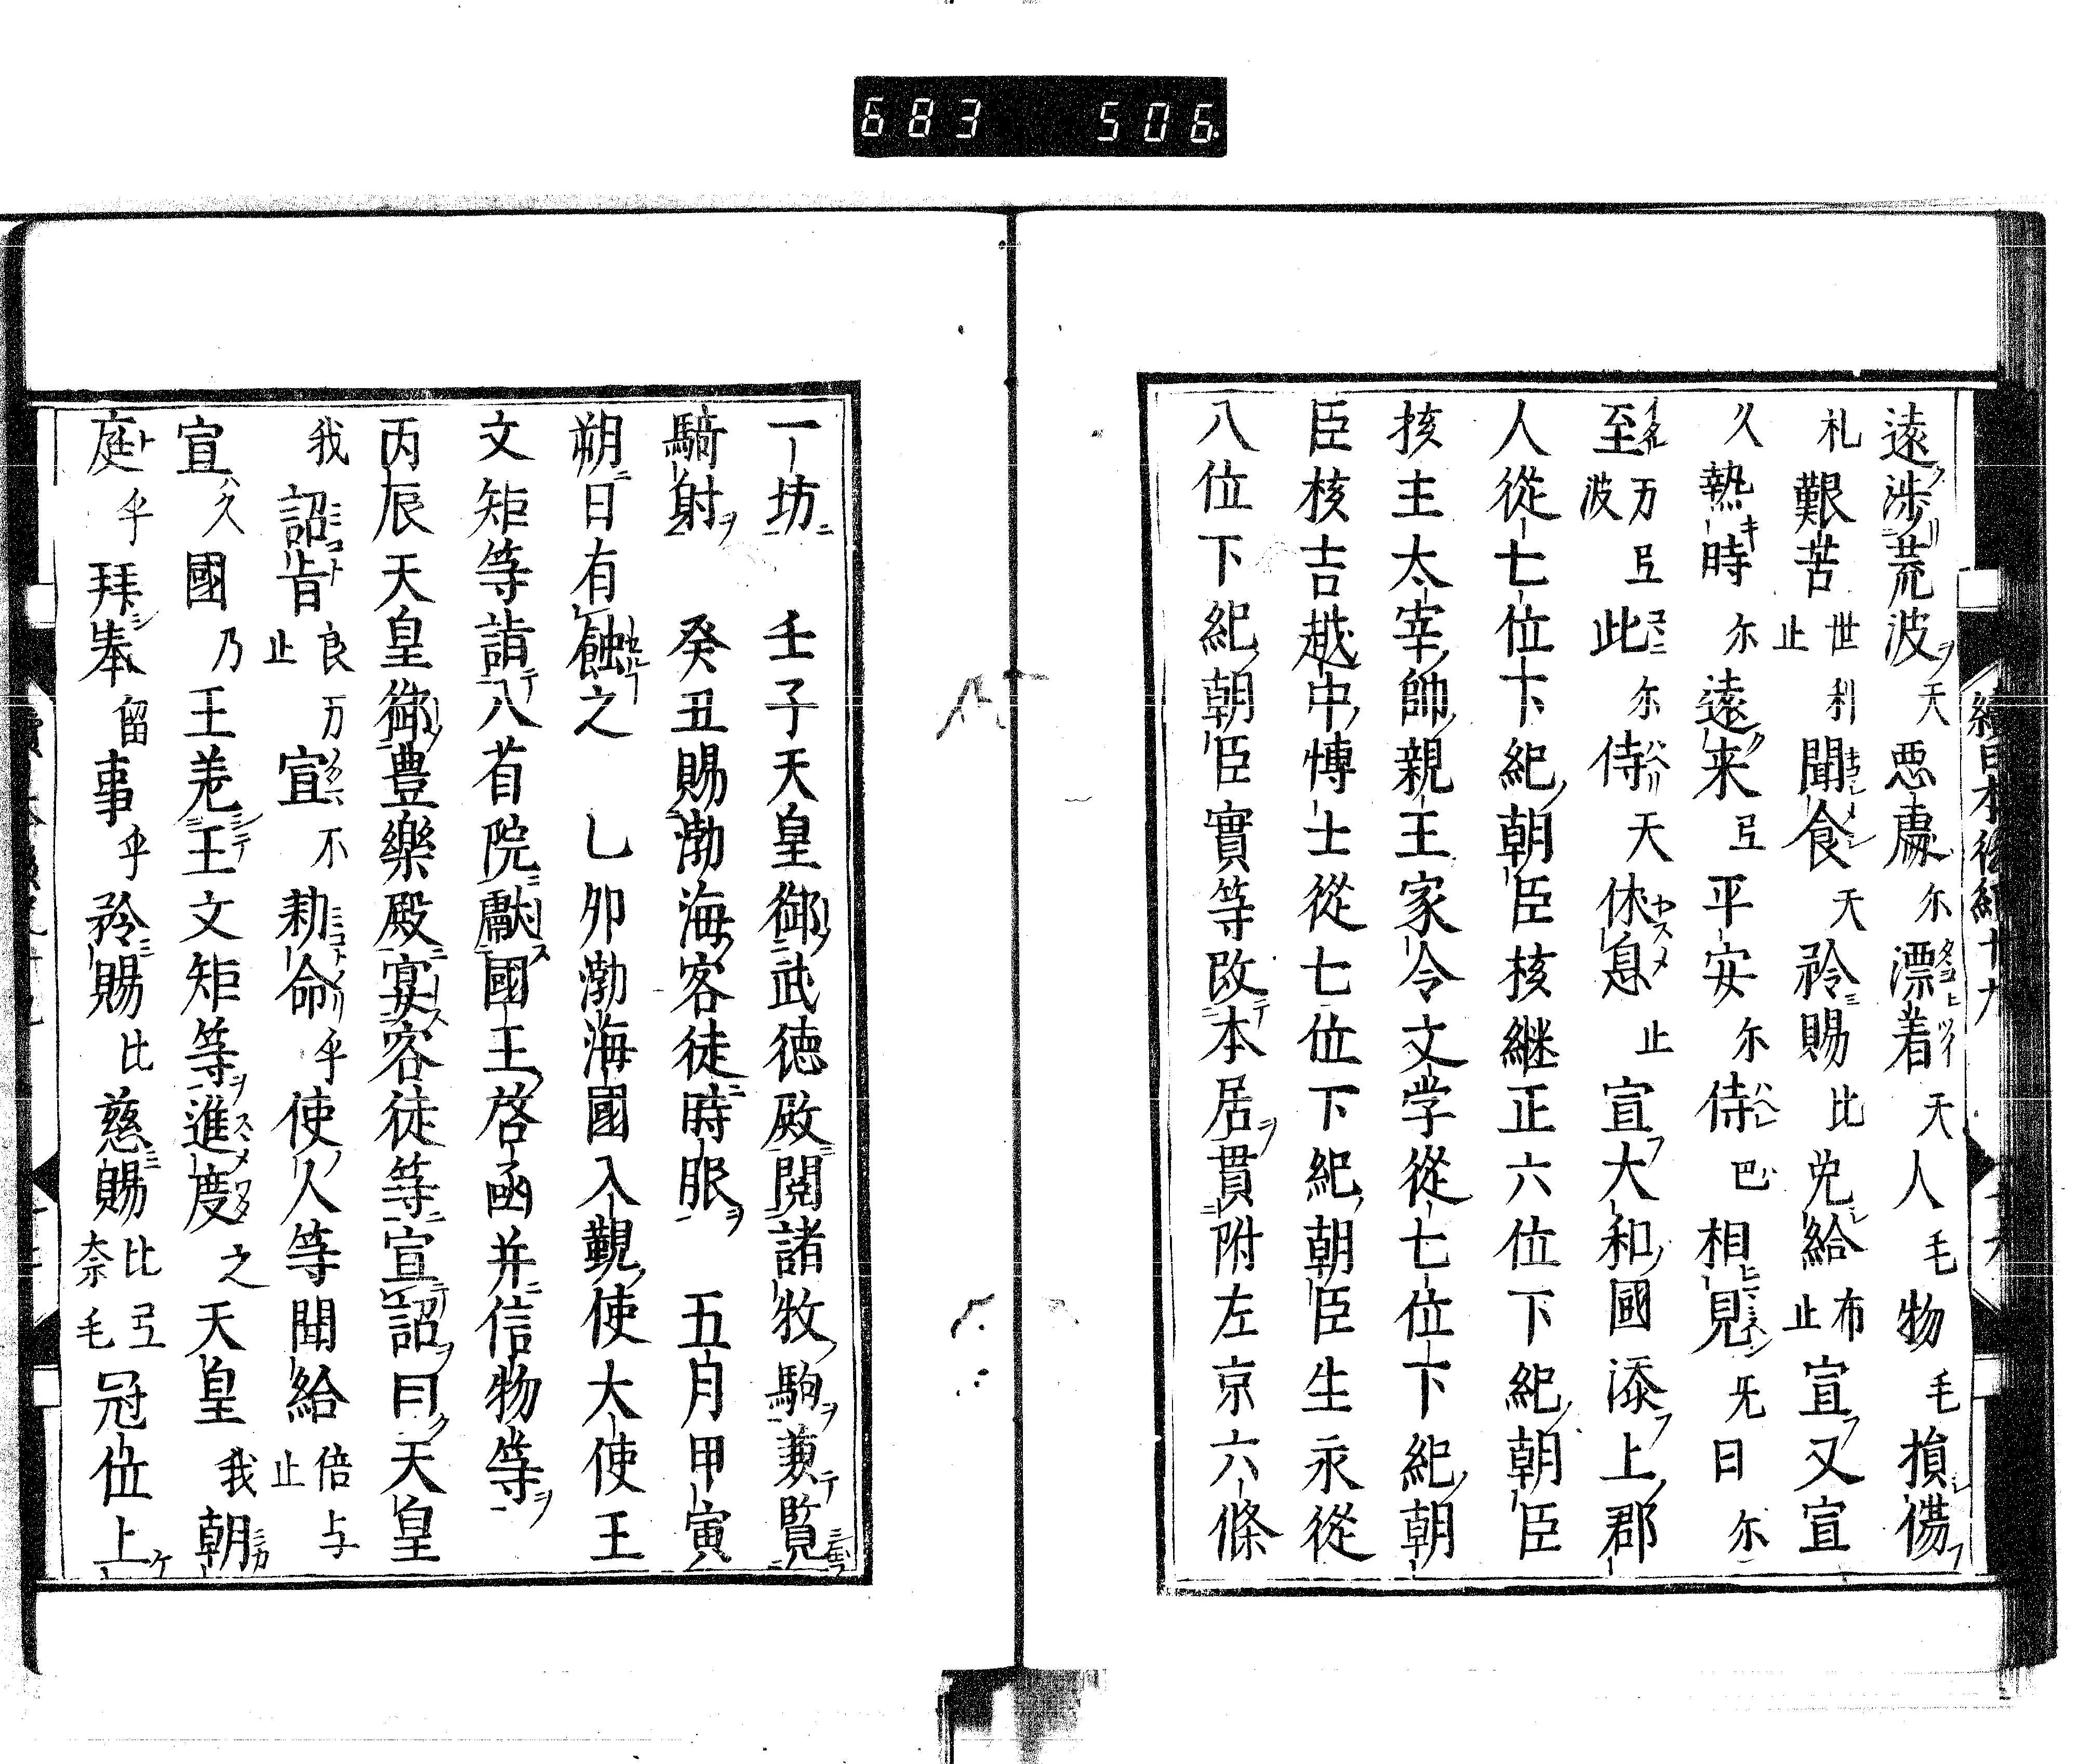 683 506.
遠渉荒波天悪處尓漂着天人毛物毛損傷
札艱苦世止利聞食天矜賜比免給布止宣又宣
久熱時尓遠来弖平安尓侍巴相見旡日尓
至万波弖此尓侍天休息止宣大和國添上郡
人從七位下紀朝臣核継正六位下紀朝臣
核主太宰帥親王家令文学從七位下紀朝
臣核吉越中博士從七位下紀朝臣生永從
八位下紀朝臣實等改本居貫附左京六條
一坊 壬子天皇御武徳殿閲諸牧駒兼覧
騎射 癸丑賜渤海客徒時服 五月甲寅
朔日有蝕之 乙卯渤海國入覲使大使王
文矩等詣八省院獻國王啓函并信物等
丙辰天皇御豊樂殿宴客徒等宣詔曰天皇
我詔旨良止万宣不勅命乎使人等聞給倍止与
宣久國乃王差王文矩等進度之天皇我朝
庭乎拜奉留事乎矜賜比慈賜比奈弖毛冠位上